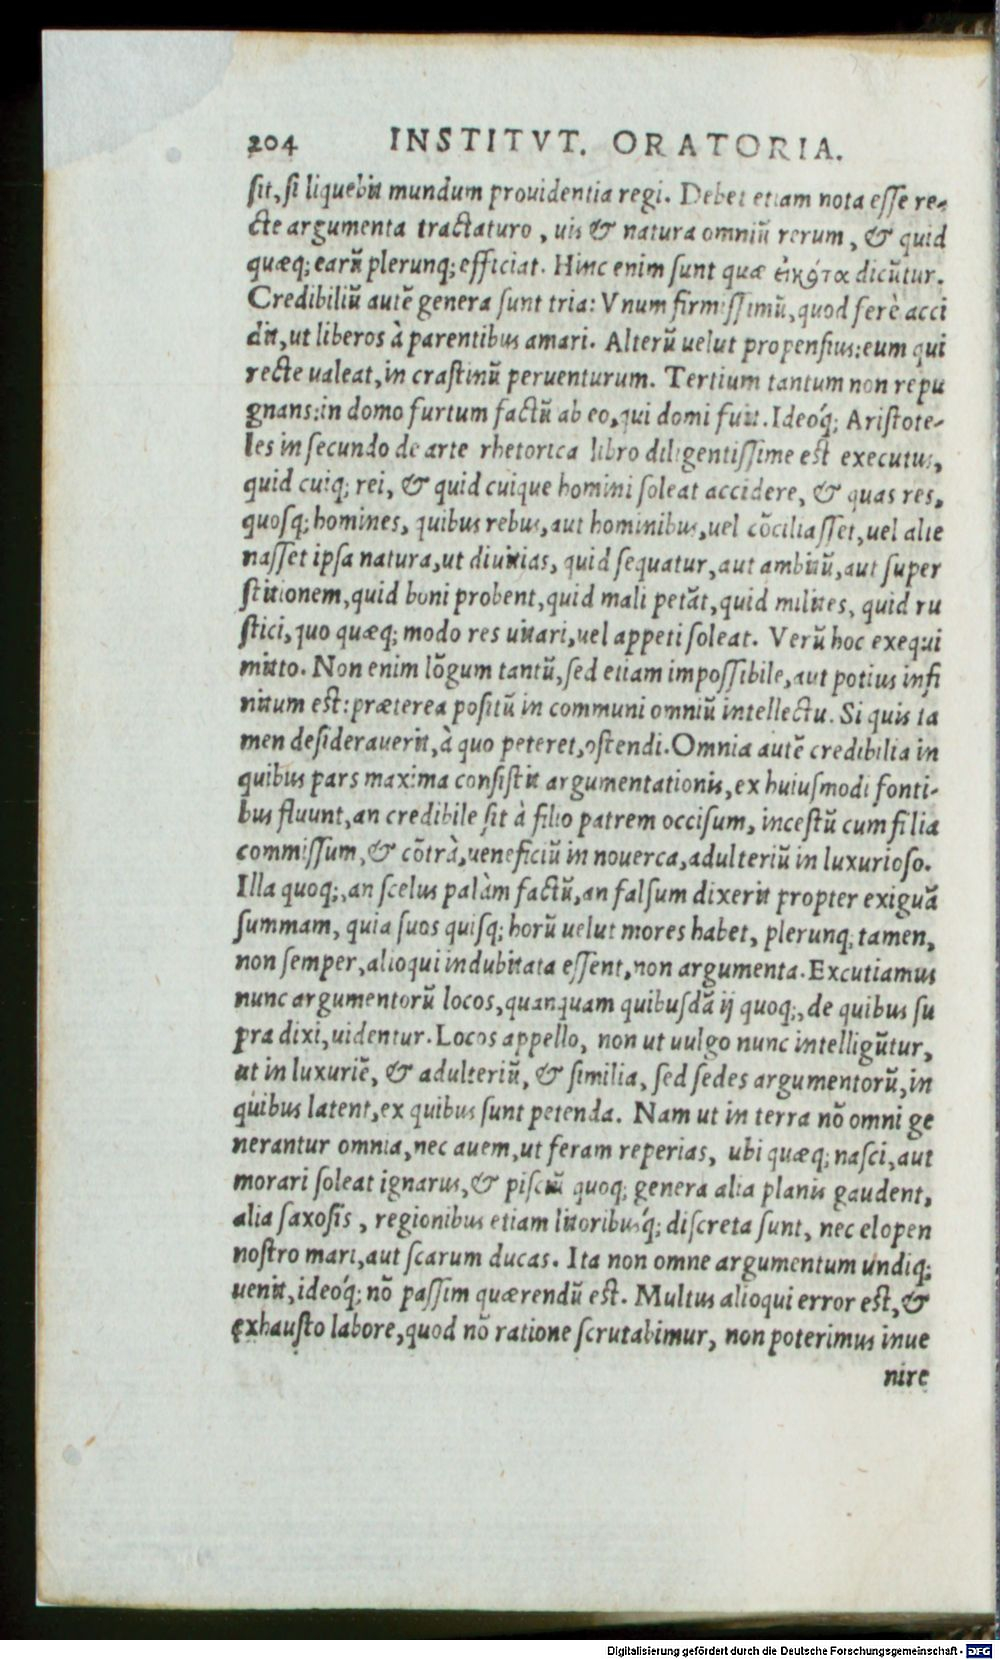 204 INSTITVT. ORATORIA.
ſit, ſi liquebit mundum prouidentia regi. Debet etiam nota eſſe re-
cte argumenta tractaturo, uis & natura omniũ rerum, & quid
quæq; earũ plerunq; efficiat. Hinc enim ſunt quæ εἰκότα dicũtur.
Credibiliũ autẽ genera ſunt tria: Vnum firmiſſimũ, quod ferè acci
dit, ut liberos à parentibus amari. Alterũ uelut propenſius: eum qui
recte ualeat, in craſtinũ peruenturum. Tertium tantum non repu
gnans: in domo furtum factũ ab eo, qui domi fuit. Ideóq; Ariſtote-
les in ſecundo de arte rhetorica libro diligentiſſime eſt executus,
quid cuiq; rei, & quid cuique homini ſoleat accidere, & quas res,
quoſq; homines, quibus rebus, aut hominibus, uel cõciliaſſet, uel alie
naſſet ipſa natura, ut diuitias, quid ſequatur, aut ambitũ, aut ſuper
ſtitionem, quid boni probent, quid mali petãt, quid milites, quid ru
ſtici, quo quæq; modo res uitari, uel appeti ſoleat. Verũ hoc exequi
mitto. Non enim lõgum tantũ, ſed etiam impoſſibile, aut potius infi
nitum eſt: præterea poſitũ in communi omniũ intellectu. Si quis ta
men deſiderauerit, à quo peteret, oſtendi. Omnia autẽ credibilia in
quibus pars maxima conſiſtit argumentationis, ex huiuſmodi fonti-
bus fluunt, an credibile ſit à filio patrem occiſum, inceſtũ cum filia
commiſſum, & cõtrà, ueneficiũ in nouerca, adulteriũ in luxurioſo.
Illa quoq;, an ſcelus palàm factũ, an falſum dixerit propter exiguã
ſummam, quia ſuos quiſq; horũ uelut mores habet, plerunq; tamen,
non ſemper, alioqui indubitata eſſent, non argumenta. Excutiamus
nunc argumentorũ locos, quanquam quibuſdã ij quoq;, de quibus ſu
pra dixi, uidentur. Locos appello, non ut uulgo nunc intelligũtur,
ut in luxuriẽ, & adulteriũ, & ſimilia, ſed ſedes argumentorũ, in
quibus latent, ex quibus ſunt petenda. Nam ut in terra nõ omni ge
nerantur omnia, nec auem, ut feram reperias, ubi quæq; naſci, aut
morari ſoleat ignarus, & piſciũ quoq; genera alia planis gaudent,
alia ſaxoſis, regionibus etiam litoribusq́; diſcreta ſunt, nec elopen
noſtro mari, aut ſcarum ducas. Ita non omne argumentum undiq;
uenit, ideóq; nõ paſſim quærendũ eſt. Multus alioqui error eſt, &
exhauſto labore, quod nõ ratione ſcrutabimur, non poterimus inue
nire
Digitalisierung gefördert durch die Deutsche Forschungsgemeinschaft - DFG